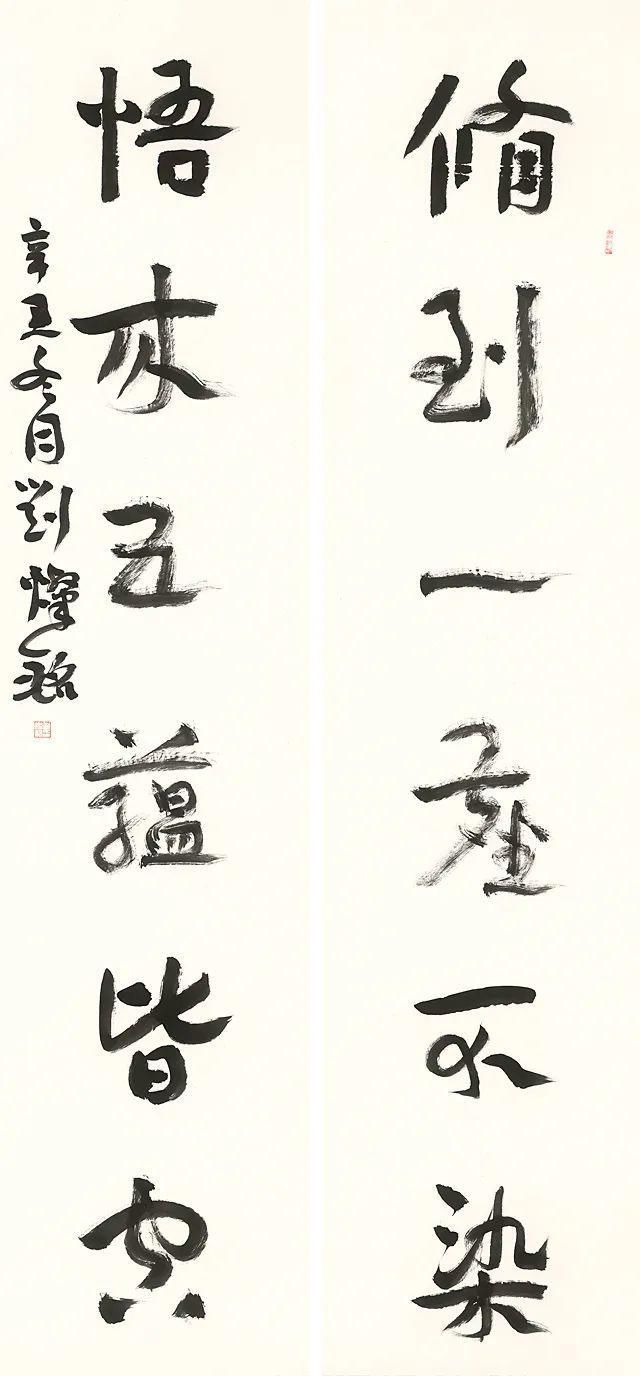 脩到一塵不染
悟来五藴皆空
辛丑冬月劉燦銘